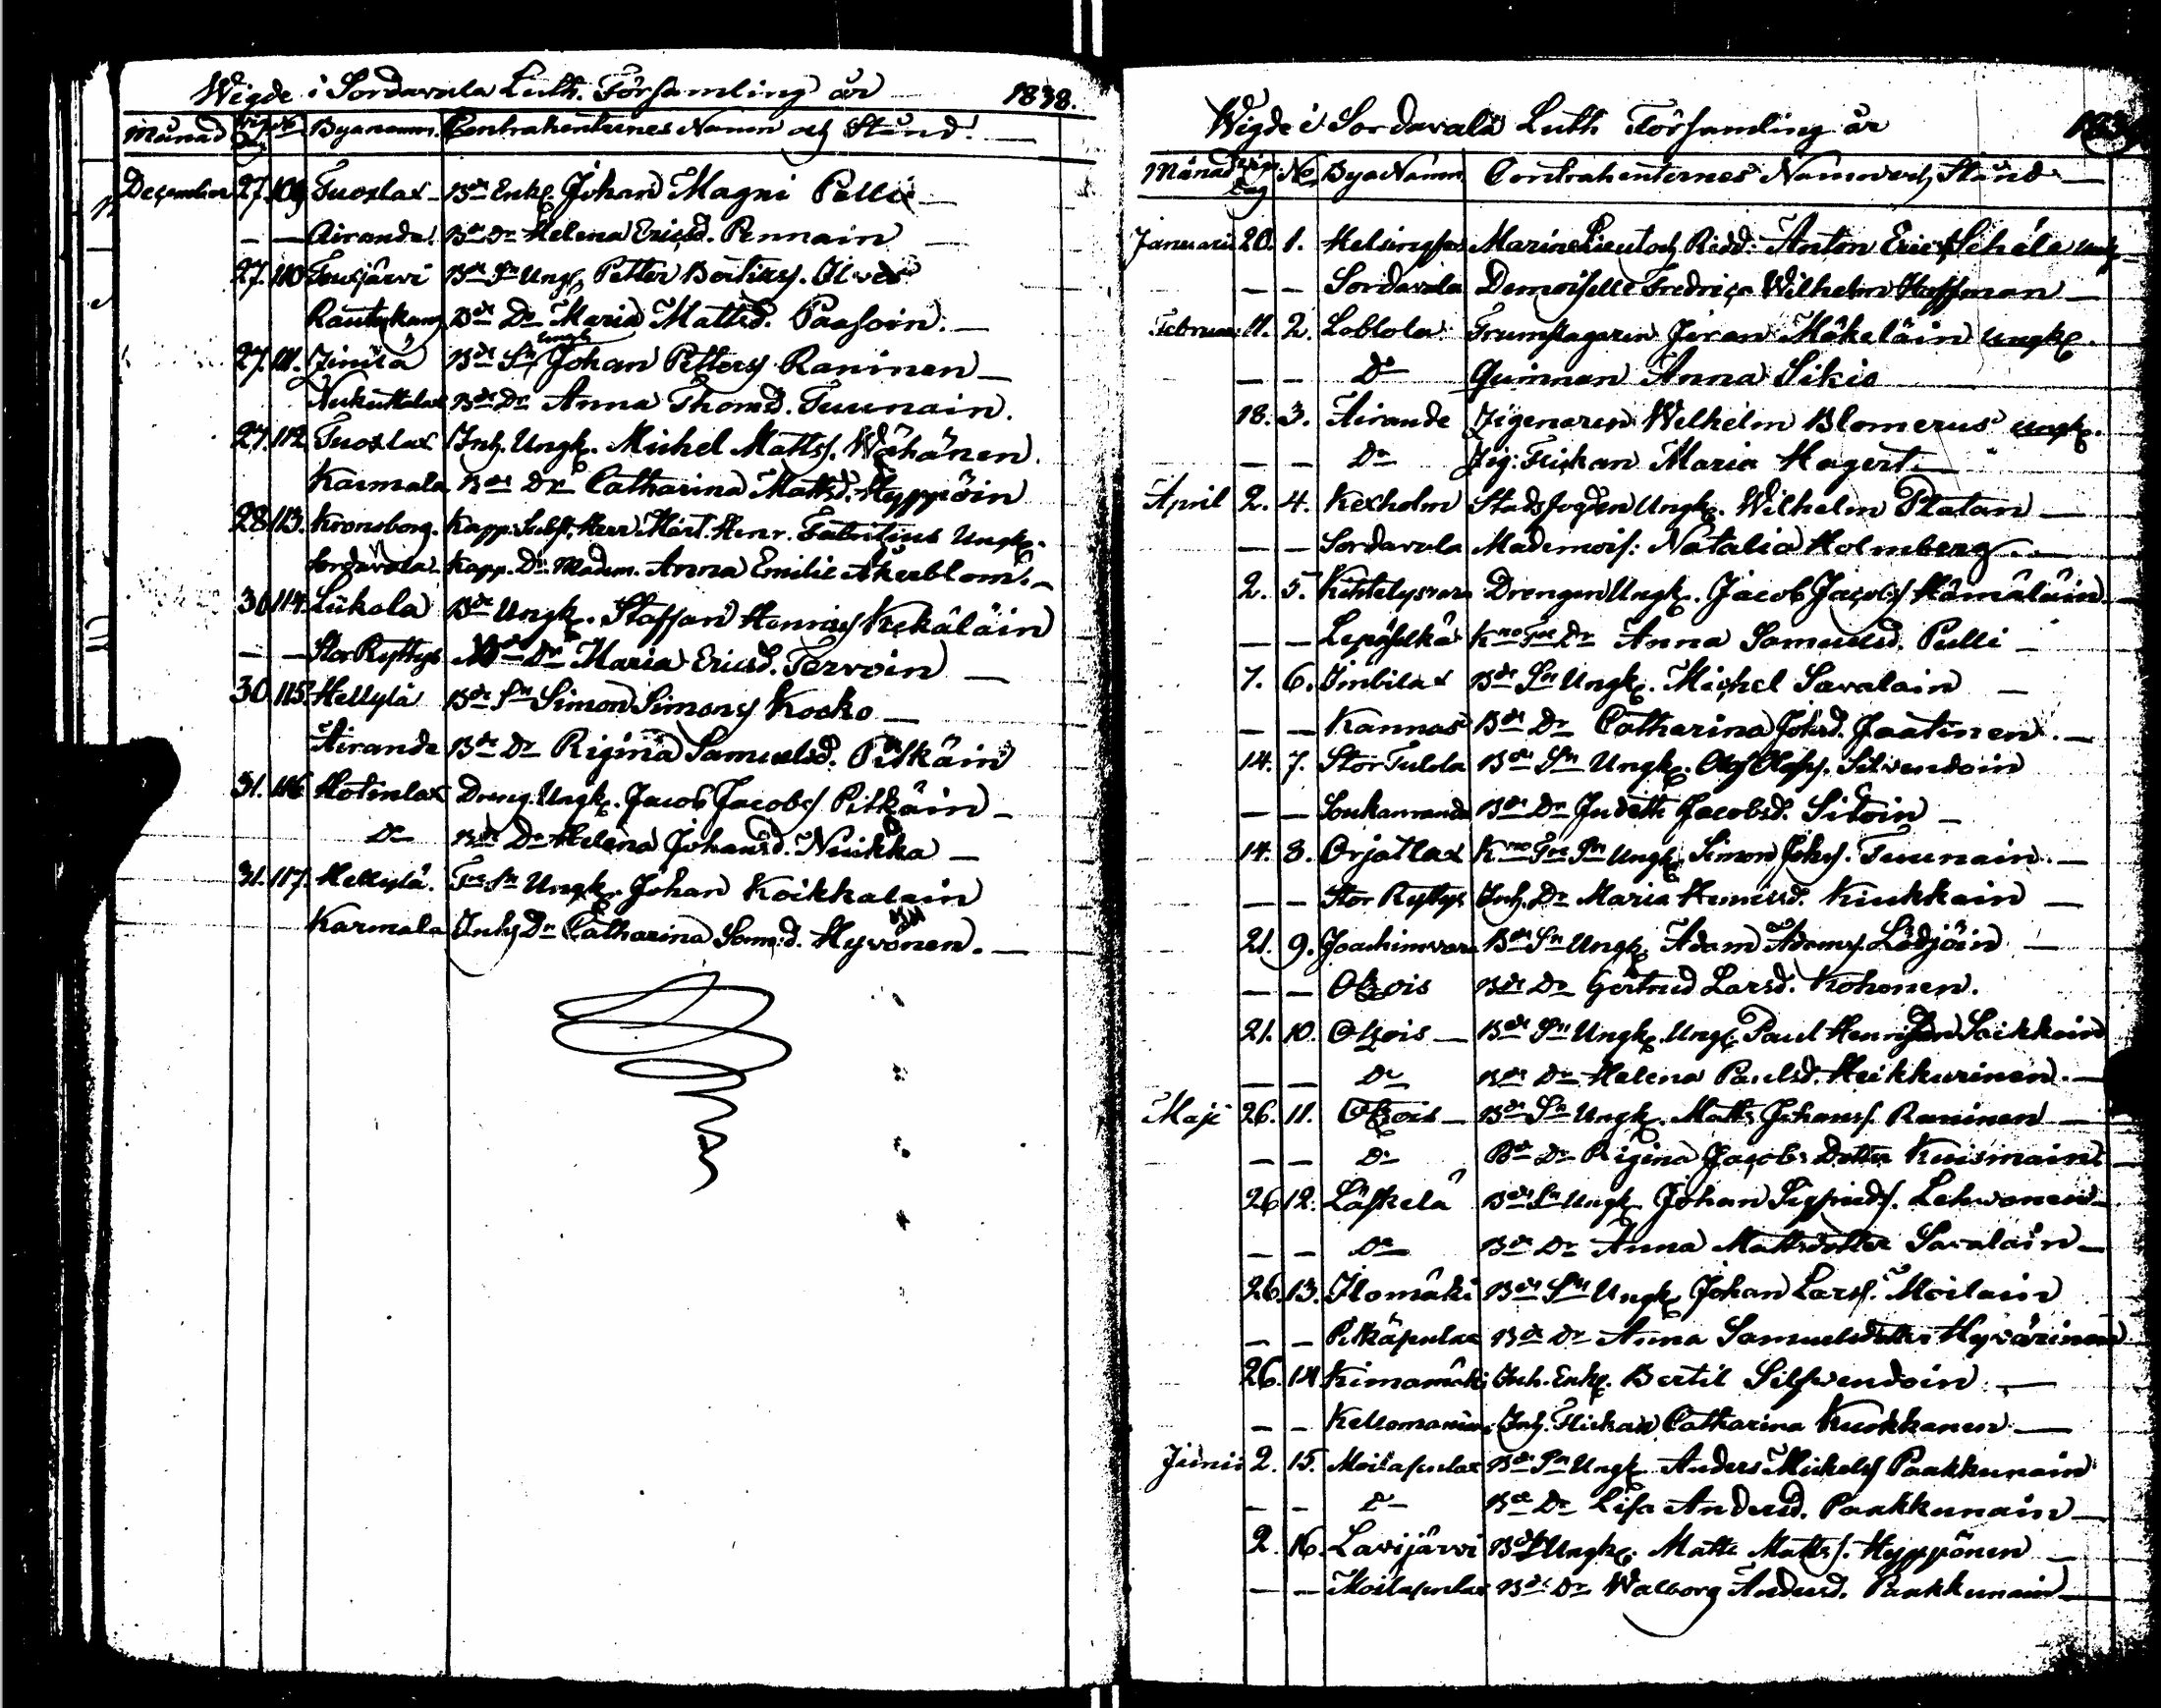 Wigde i Sordavala Luth. Församling år 1838.
Månad Dag No Byanamn. Contrahenternes Namn och Stånd.
December 27. 109 Tuoxlax Bde Enkl. Johan Magni Pelli
— — Airanda. Bde Dr Helena Ericsd. Pennain
27. 110 Bde Sn Ungk. Petter Bertilss. Ilves
Bde Dr Maria Mattsd. Paasoin.
27. 111. Bde Sn Ungk Johan Petterss Raninen
Nukuttalax Bde Dr Anna Thomsd. Tuunain.
27. 112. Tuoxlax Inh. Ungk. Michel Mattss. Wähänen.
Karmala Bde Dr Catharina Mattsd. Hyppöin
28. 113. Kronoborg. Kapp. Herr Mårt. Henr. Fabritius Ungk.
Sordavala. Kapp. Dr Madem. Anna Emilie Åkerblom.
30. 114. Liikola Bde Ungk. Staffan Henricss Kekäläin
— — Stor Ryttys Bde Dr Maria Ericsd. Tervoin
30. 115. Hellylä Bde Sn Simon Simonss Kosko
Airanda Bde Dr Rigina Samuelsd. Pitkäin
31. 116 Hotinlax Dreng. Ungk. Jacob Jacobss Pitkäin
Do Bde Dr Helena Johansd. Nuikka
31. 117. Hellylä. Sn Ungk. Johan Koikkalain
Karmala Inhs Dr Catharina Sams.d. Hyvönen.
Wigde i Sordavala Luth Församling år
Månad Dag No. ByaNamn. Contrahenternes Namn och Stånd
Januari 20. 1. Helsingfors Marine Lieut och Ridd. Anton Eric Schéle Ungk
— — Sordavala Demoiselle Fredrica Wilhelm Hoffman
Februari 11. 2. Trumslagaren Göran Mäkeläin Ungk.
— — Do Quinnan Anna Sikio
18. 3. Airanda Zigenaren Wilhelm Blomerus Ungk.
— — Do Zig. Flickan Maria Hagert
April 2. 4. Kexholm Stadsfogden Ungk. Wilhelm Platan
— — Sordavala Mademois: Natalia Holmberg
2. 5. Kihtelysvara Drengen Ungk. Jacob Jacobss Hämäläin
— — Dr Anna Samuelsd. Pulli
7. 6. Imbilax Bde Sn Ungk. Michel Savalain
— — Kannas Bde Dr Catharina Johsd. Jaatinen.
14. 7. Stor Tulola Bde Sn Ungk. Olof Olofss. Silvendoin
— — Soukanranda Bde Dr Judith Jacobsd. Sitoin
14. 8. Orjatlax Sn Ungk. Simon Johss. Tuunain.
— — Stor Ryttys Inh. Dr Maria Henricsd. Kiukkain
21. 9. Joachimvara Bde Sn Ungk. Adam Adamss. Lödjöin
— — Otsois Bde Dr Gertrud Larsd. Kohonen.
21. 10. Otsois Bde Sn Ungk. Ungk. Paul Henricsson Saikkoin
— — Do Bde Dr Helena Paulsd. Heikkurinen.
Maji 26. 11. Otsois Bde Sn Ungk. Matts Johanss. Raninen
— — Do Bde Dr Rigina Jacobs Dotter Kuismain
26. 12. Läskelä Bde Sn Ungk. Johan Sigfrids. Lehvonen
— — Do Bde Dr Anna Mattsdotter Savalain
26. 13. Ilomäki Bde Sn Ungk. Johan Larss. Moilain
— — Pitkäpulax Bde Dr Anna Samuelsdotter Hyvärinen
26. 14 Kimamäki Inh. Enkl. Bertil Silfvendoin
— — Inh. Flickan Catharina Kuokkanen
Junii 2. 15. Moilapulax Bde Sn Ungk. Anders Michelss Paakkunain
— — Do Bde Dr Lisa Andersd. Paakkunain
2. 16. Lavijärvi Bde Sn Ungk. Matts Mattss. Hyppönen
— — Moilapulax Bde Dr Walborg Andersd. Paakkunain